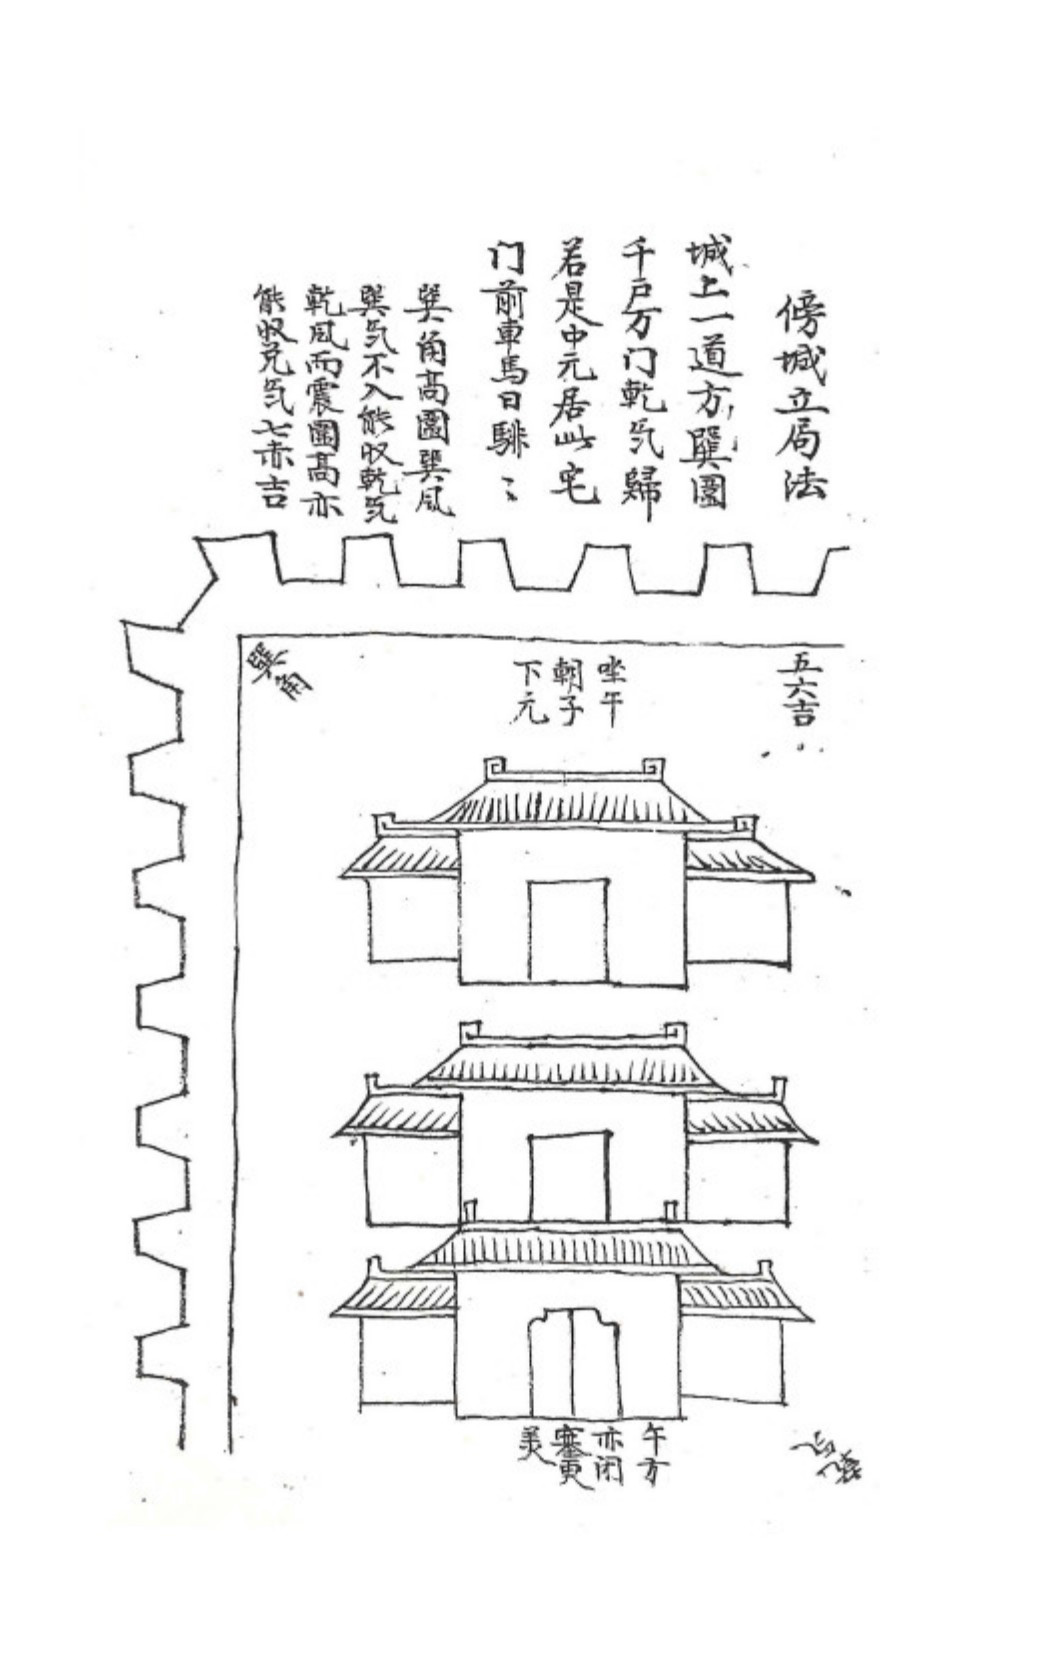 傍城立局法
城上一道方巽圍
千戸万门乾炁歸
若是中元居此宅
门前車馬日騑〻
巽角高圍巽凮
巽炁不入能収乾炁
乾凮而震圍高亦
能収兑炁七赤吉
五六吉
坐午
朝子
下元
巽角
午方
亦闭
塞更
美